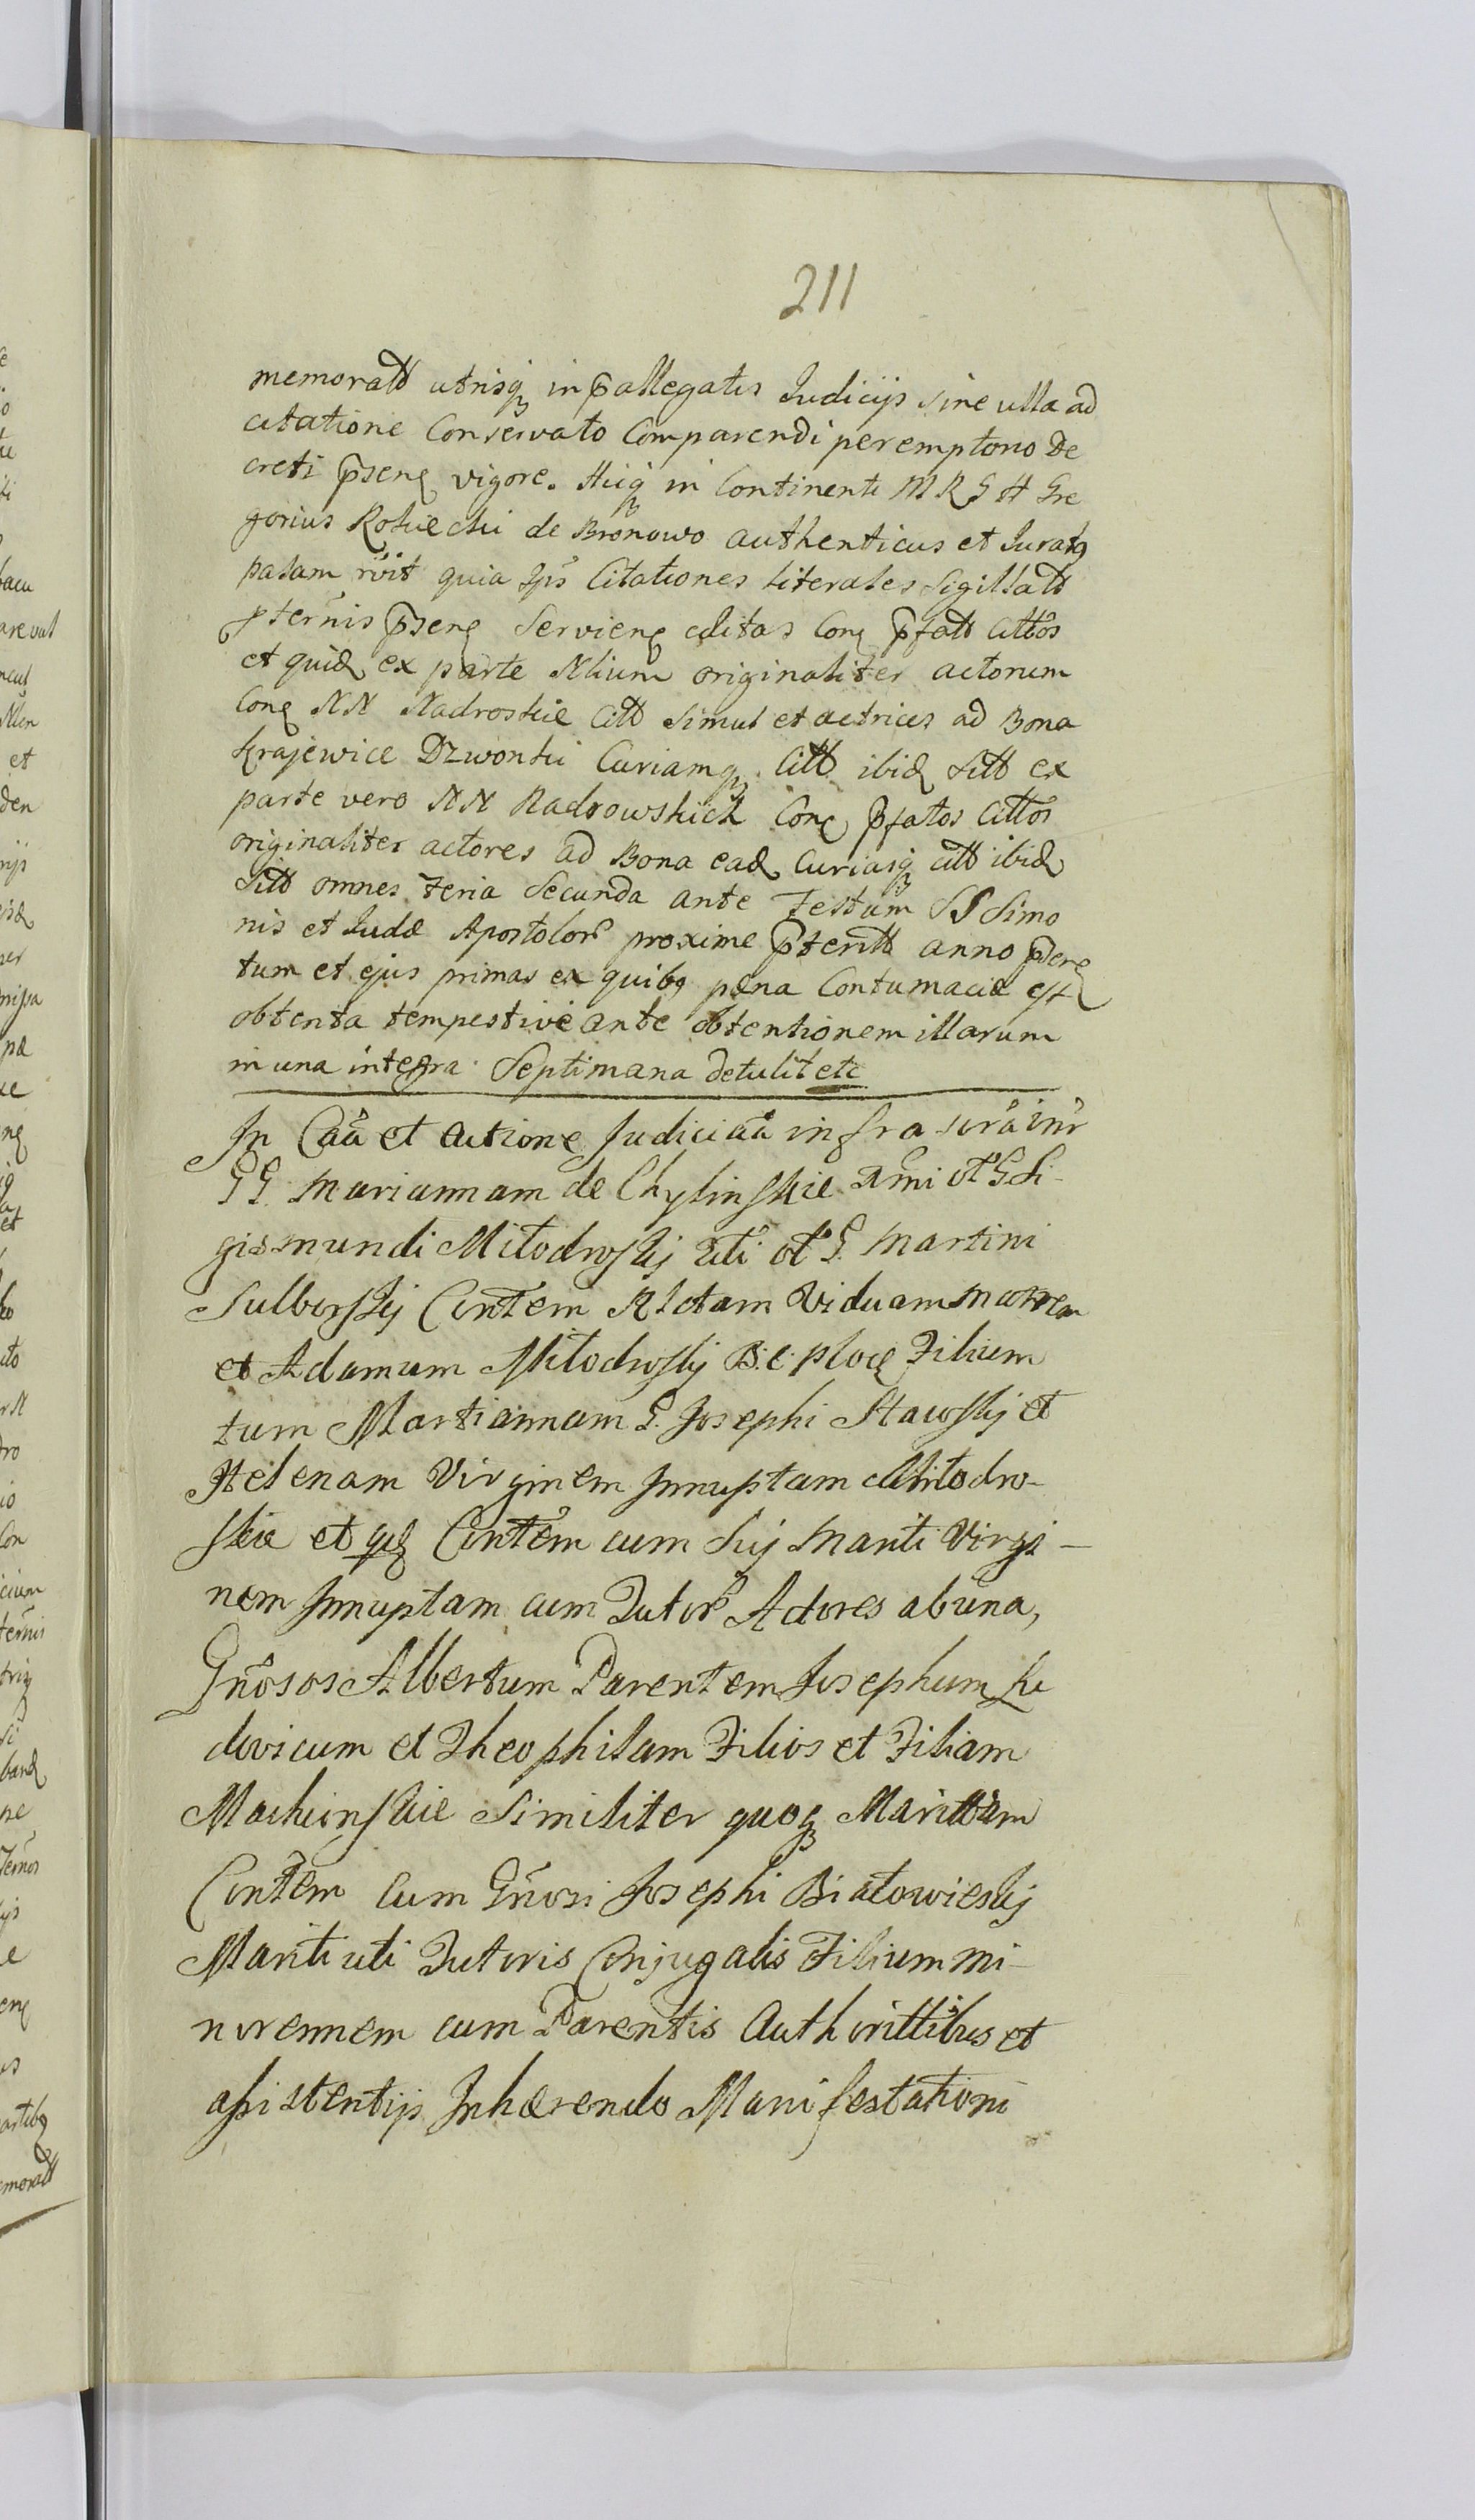 211
memoratt utrisq in pallegatis Judicijs sine ulla ad
citatione Conservato Comparendi peremptorio De
creti psenę vigore. Hicq in Continenti M R G H Gre
gorius Rokicchi de Bronowo authenticus et Juratq
palam rōit quia Ips Citationes literales Sigillatt
pternis psenę Servienę editas Conę pfatt Cittos
et quidę ex parte Nlium originaliter actorum
Conę NN Nadroskie Citt Simul et actrices ad Bona
Krajewice Dzwonki Curiamq Citt ibidę Sitt ex
parte vero NN Nadrowskich Conę pfatos Cittos
originaliter actores ad Bona eadę Curiasq citt ibidę
Sitt omnes Feria Secunda ante Festum SS Simo
nis et Judæ Apostolor proxime pteritt anno pserę
tum et ejus primas ex quibq pæna Contumaciæ est
obtenta tempestive ante obtentionem illarum
in una integra Septimana detulit etc
In Caā et actione Judiciaā infra scrā inr
GG. Mariannam de Chylinskie ami ol G Si-
gismundi Miłodroskij 2di ol G. Martini
Sulborskij Contēm Rlctam Viduam Matrem
et Adamum Miłodroskij B. C. plocę Filium
tum Martiannam G. Josephi Stawskij et
Helenam Virginem Innuptam Miłodro-
skie et qdę Contēm cum Sui Mariti Virgi-
nem Innuptam cum Tutor Actores ab una,
Gnōsos Albertum Parentem Josephum Lu
dovicum et Theophilam Filios et Filiam
Machcinskie Similiter quoq Marittam
Contēm Cum Gnōsi Josephi Białowieskij
Mariti uti Tutoris Conjugalis Filium mi-
norennem cum Parentis Authorittibus et
assistentijs Inhærendo Manifestationi